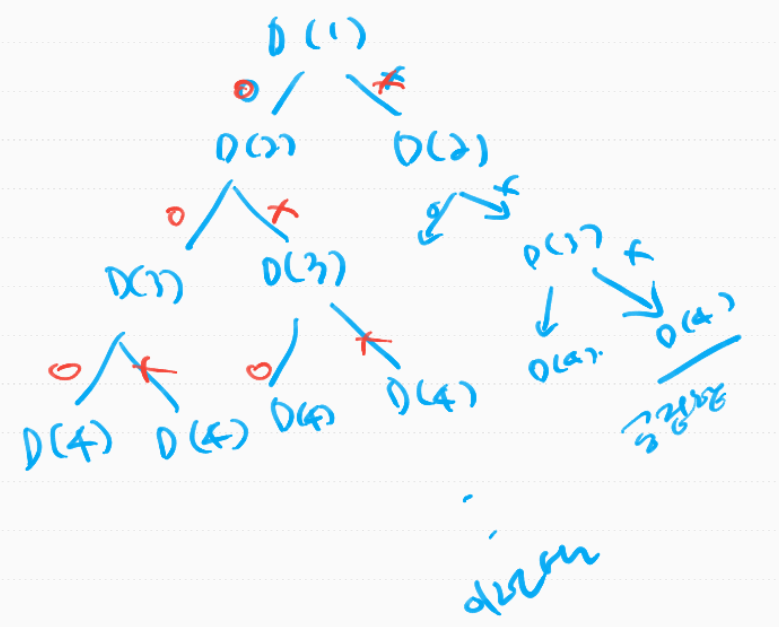 D(1)
O X
D(2) D(2)
O X O X
D(3) D(3) D(3) X
O X O X D(4) D(4)
D(4) D(4) D(4) D(4)